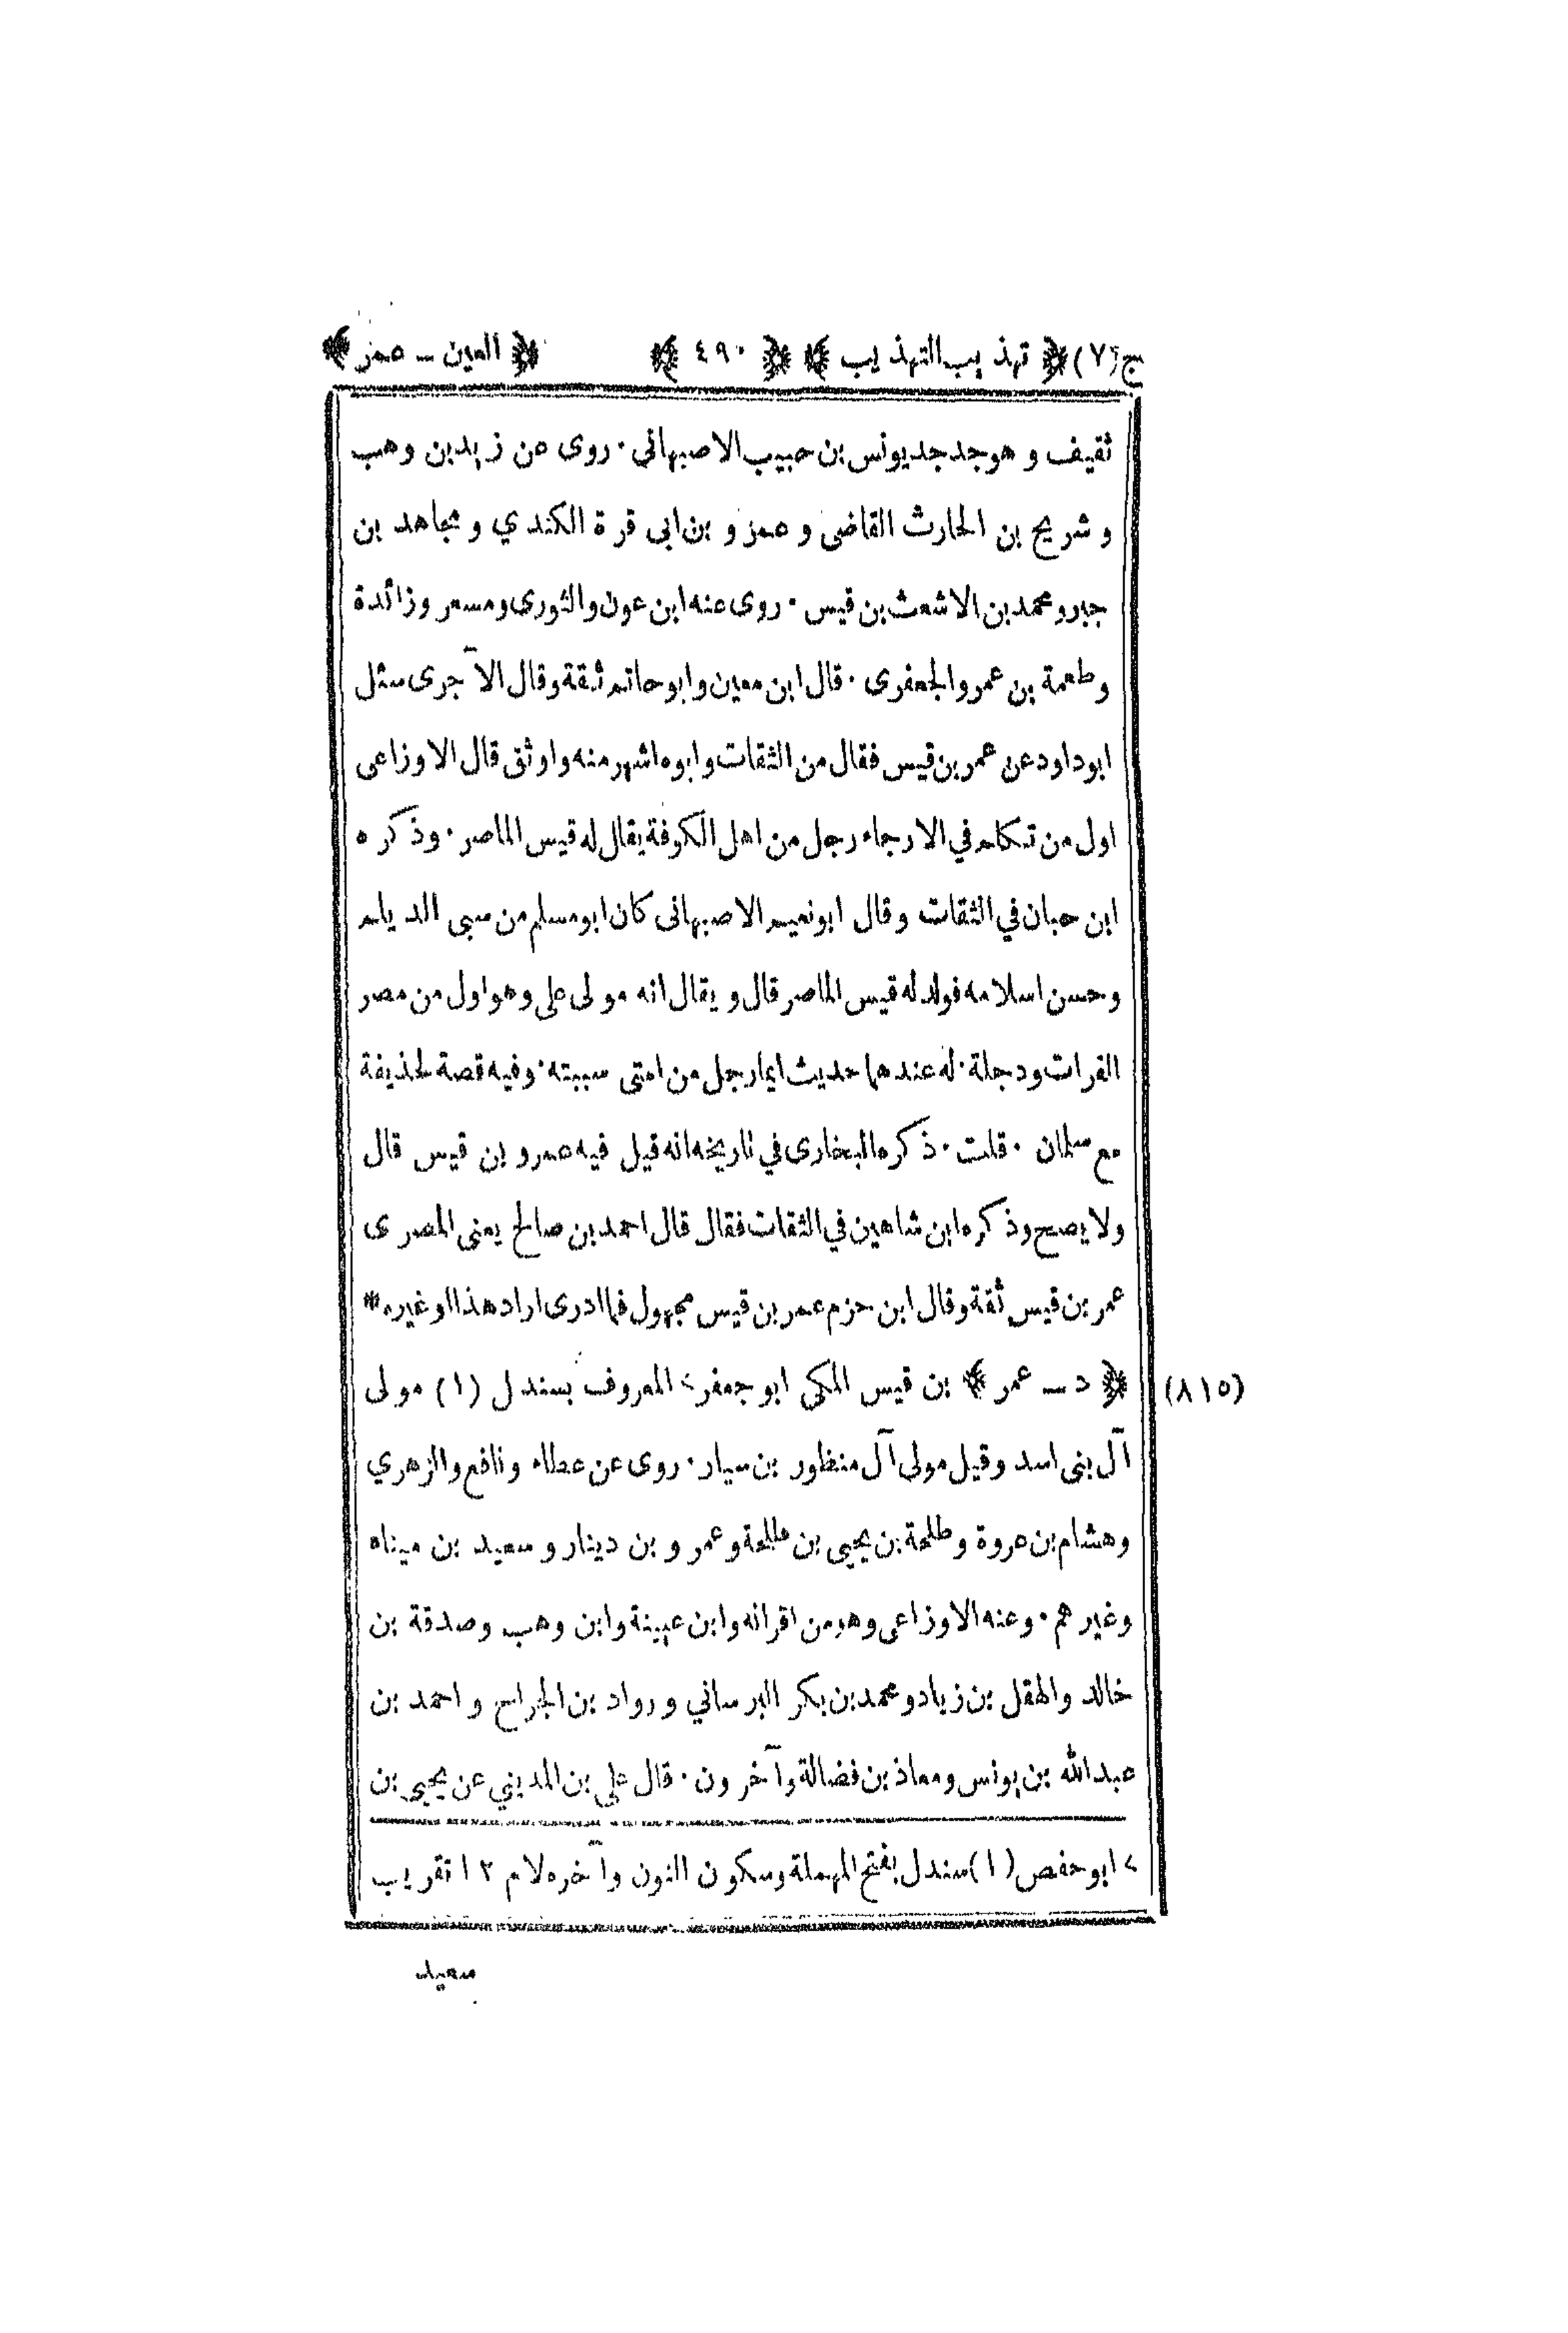 ج (٧) ﴿ تهذيب التهذيب ﴾ ﴿ ٤٩٠ ﴾ ﴿ العين ــ عمر ﴾
ثقيف وهو جد جد يونس بن حبيب الاصبهاني . روى عن زيد بن وهب
وشريح بن الحارث القاضى وعمرو بن ابى قرة الكندي ومجاهد بن
جبر ومحمد بن الاشعث بن قيس . روى عنه ابن عون والثورى ومسعر وزائدة
وطعمة بن عمرو الجعفرى . قال ابن معين وابو حاتم ثقة وقال الآجرى سئل
ابو داود عن عمر بن قيس فقال من الثقات وابوه اشهر منه واوثق قال الاوزاعى
اول من تكلم في الارجاء رجل من اهل الكوفة يقال له قيس الماصر . وذكره
ابن حبان في الثقات وقال ابو نعيم الاصبهانى كان ابو مسلم من سبى الديلم
وحسن اسلامه فولد له قيس الماصر قال ويقال انه مولى على وهو اول من مصر
الفرات ودجلة . له عندهما حديث ايما رجل من امتى سببته . وفيه قصة لحذيفة
مع سلمان . قلت . ذكره البخارى في تاريخه انه قيل فيه عمرو بن قيس قال
ولا يصح وذكره ابن شاهين في الثقات فقال قال احمد بن صالح يعنى المصرى
عمر بن قيس ثقة وقال ابن حزم عمر بن قيس مجهول فما ادرى اراد هذا او غيره *
(٨١٥) ﴿ د ــ عمر ﴾ بن قيس المكى ابو جعفر > المعروف بسندل (١) مولى
آل بنى اسد وقيل مولى آل منظور بن سيار . روى عن عطاء ونافع والزهري
وهشام بن عروة وطلحة بن يحيى بن طلحة وعمرو بن دينار وسعيد بن ميناء
وغيرهم . وعنه الاوزاعى وهو من اقرانه وابن عيينة وابن وهب وصدقة بن
خالد والهقل بن زياد ومحمد بن بكر البرساني ورواد بن الجراح واحمد بن
عبد الله بن يونس ومعاذ بن فضالة وآخرون . قال على بن المديني عن يحيى بن
> ابو حفص (١) سندل بفتح المهملة وسكون النون وآخره لام ١٢ تقريب
سعيد